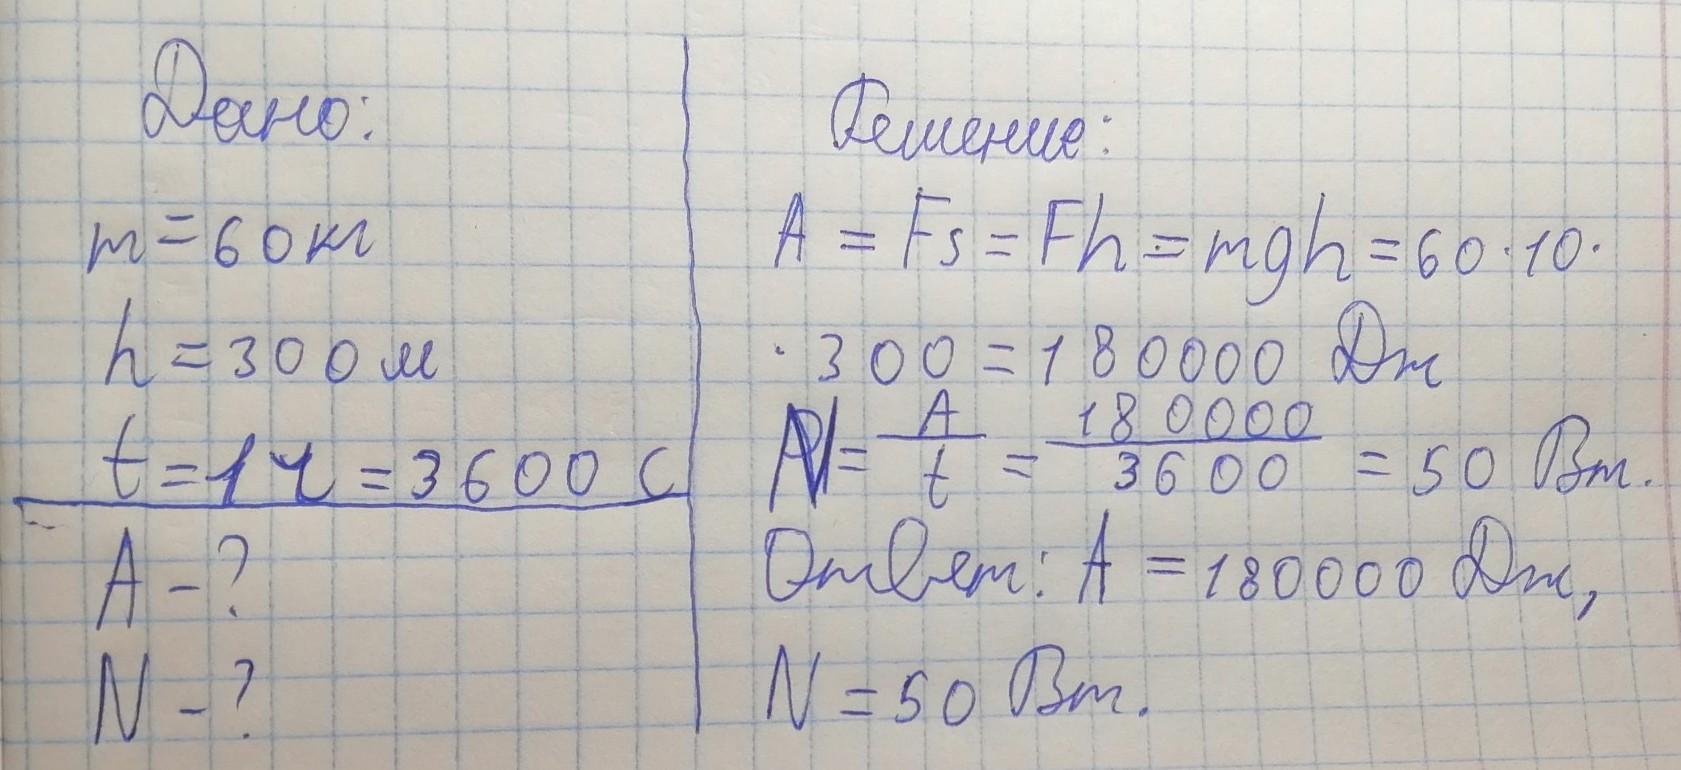 Дано:
m = 60 кг
h = 300 м
t = 1 ч = 3600 с
A - ?
N - ?
Решение:
A = Fs = Fh = mgh = 60 · 10 ·
· 300 = 180000 Дж
N = A/t = 180000/3600 = 50 Вт.
Ответ: A = 180000 Дж,
N = 50 Вт.